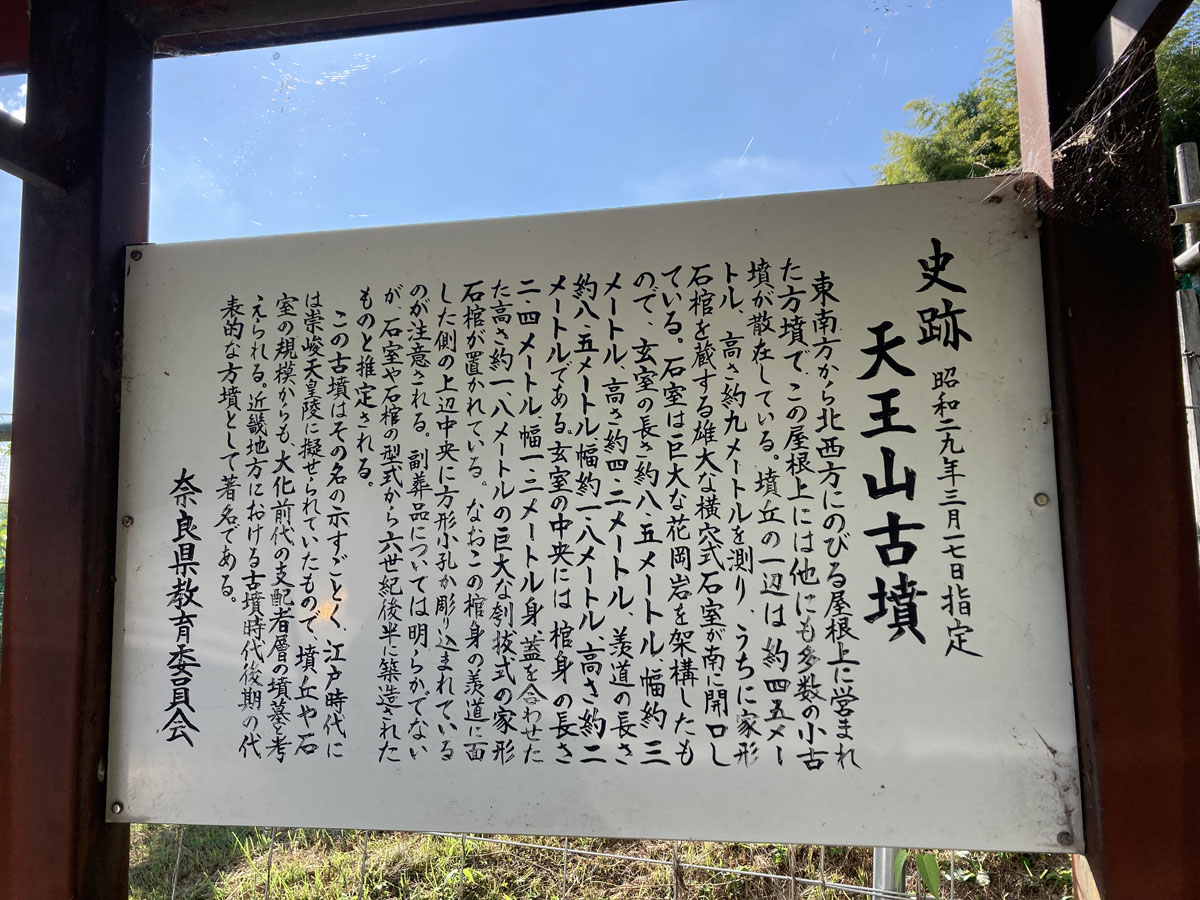 史跡
昭和二九年三月一七日指定
天王山古墳
東南方から北西方にのびる屋根上に営まれ
た方墳で、この屋根上には他にも多数の小古
墳が散在している。墳丘の一辺は約四五メー
トル、高さ約九メートルを測り、うちに家形
石棺を蔵する雄大な横穴式石室が南に開口し
ている。石室は巨大な花岡岩を架構したも
ので、玄室の長さ約八・五メートル、幅約三
メートル、高さ約四・二メートル、羨道の長さ
約八・五メートル、幅約一・八メートル、高さ約二
メートルである。玄室の中央には棺身の長さ
二・四メートル、幅一・二メートル身蓋を合わせた
た高さ約一・八メートルの巨大な刳抜式の家形
石棺が置かれている。なおこの棺身の羨道に面
した側の上辺中央に方形小孔か彫り込まれている
のが注意される。副葬品については明らかでない
が、石室や石棺の型式から六世紀後半に築造された
ものと推定される。
この古墳はその名の示すごとく、江戸時代に
は崇峻天皇陵に擬せられていたもので、墳丘や石
室の規模からも、大化前代の支配者層の墳墓と考
えられる。近畿地方における古墳時代後期の代
表的な方墳として著名である。
奈良県教育委員会